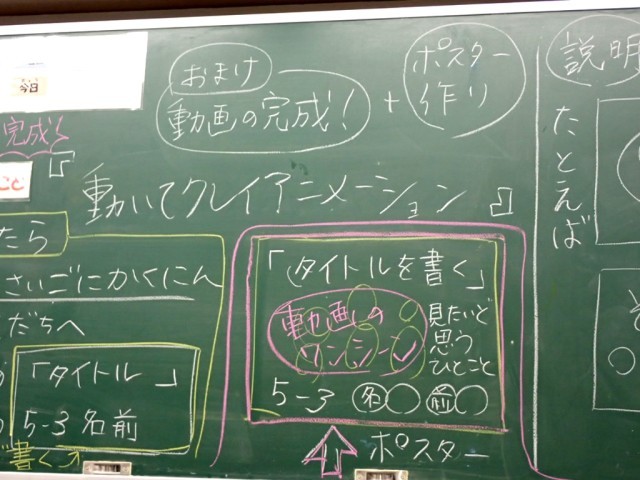 今日
おまけ
動画の完成！
+
ポスター
作り
説明
完成
こと
『動いてクレイアニメーション』
たとえば
たら
さいごにかくにん
だちへ
「タイトル　」
5-3 名前
書く
「タイトルを書く」
動画の
ワンシーン
見たいと
思う
ひとこと
5-3 名○ 前○
ポスター